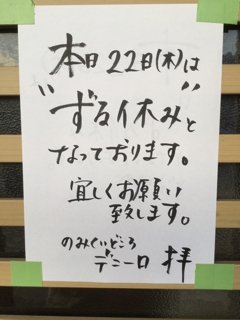 本日22日(木)は
"ずる休み"と
なっております。
宜しくお願い
致します。
のみくいどころ
デニーロ 拝